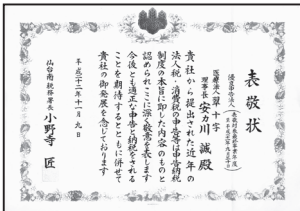 表敬状
優良申告法人
医療法人 翠十字
理事長 安力川 誠 殿
貴社から提出された近年の
法人税・消費税の申告等は申告納税
制度の本旨に即した内容のものと
認められここに深く敬意を表します
今後とも適正な申告と納税をされる
ことを期待するとともに併せて
貴社の御発展を念じております
平成二十二年十一月九日
仙台南税務署長 小野寺 匠